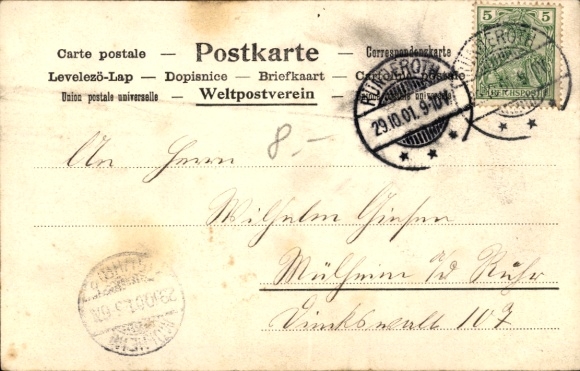 Carte postale — Postkarte — Correspondenzkarte
Levelező-Lap — Dopisnice — Briefkaart — Cartolina postale
Union postale universelle — Weltpostverein — Union postale universelle
5 5
REICHSPOST
29.10.01. 9-10V.
8.-
An Herrn
Wilhelm Giesen
Mülheim a/d Ruhr
107
29.10.01.